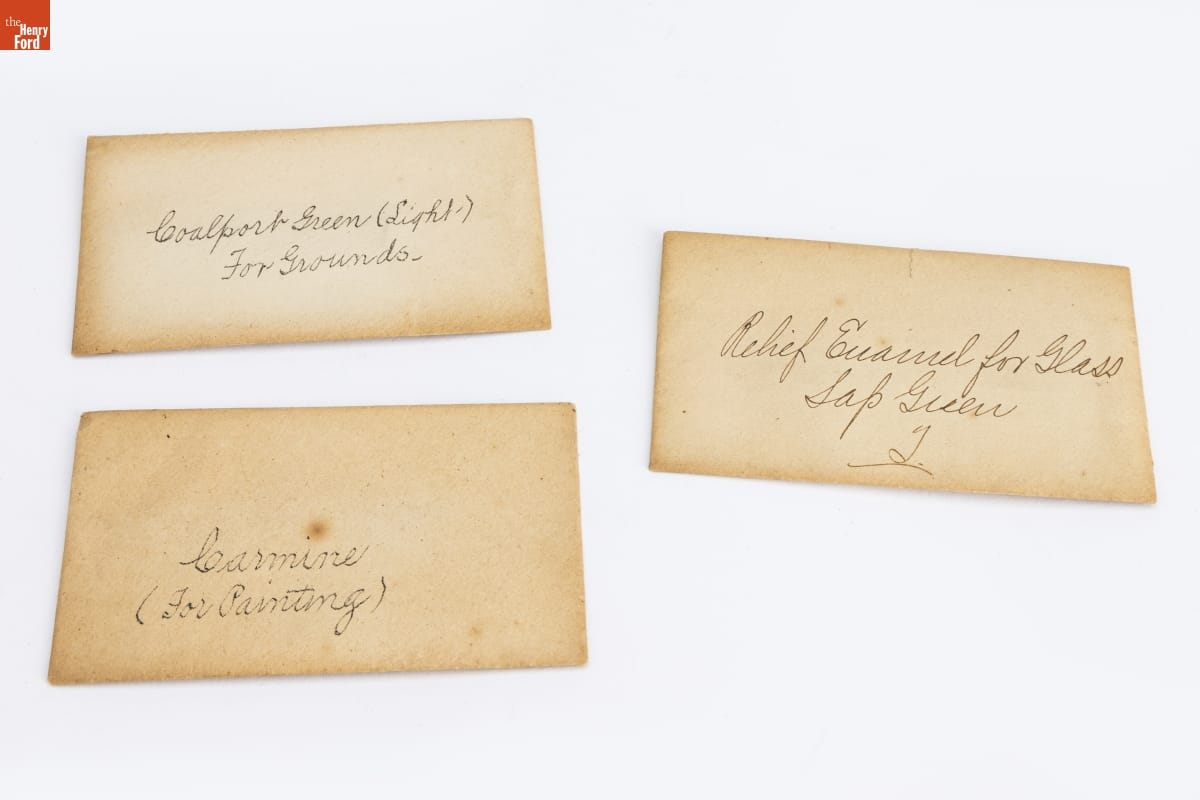 the
Henry
Ford
Coalport Green (Light)
For Grounds.
Relief Enamel for Glass
Sap Green
Carmine
(For Painting)